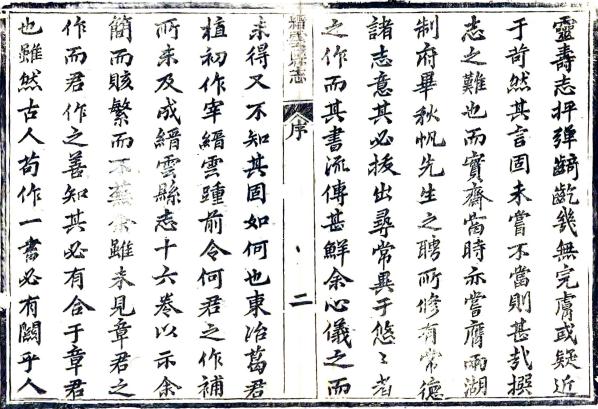 靈壽志抨彈齮齕幾無完膚或疑近
于苛然其言固未嘗不當則甚哉撰
志之難也而實齋當時亦嘗膺兩湖
制府畢秋帆先生之聘所修有常德
諸志意其必拔出尋常異于悠〻者
之作而其書流傳甚鮮余心儀之而
縉雲縣志
序
二
未得又不知其固如何也東冶葛君
植初作宰縉雲踵前令何君之作補
所未及成縉雲縣志十六卷以示余
簡而賅繁而不蕪余雖未見章君之
作而君作之善知其必有合于章君
也雖然古人苟作一書必有闕乎人